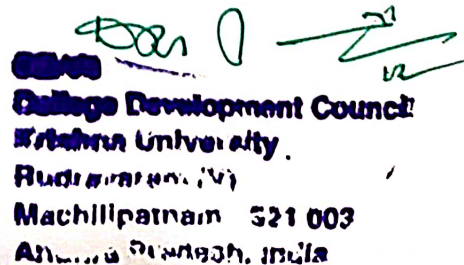 College Development Council
Krishna University
Rudravaram (V)
Machilipatnam 521 003
Andhra Pradesh, India